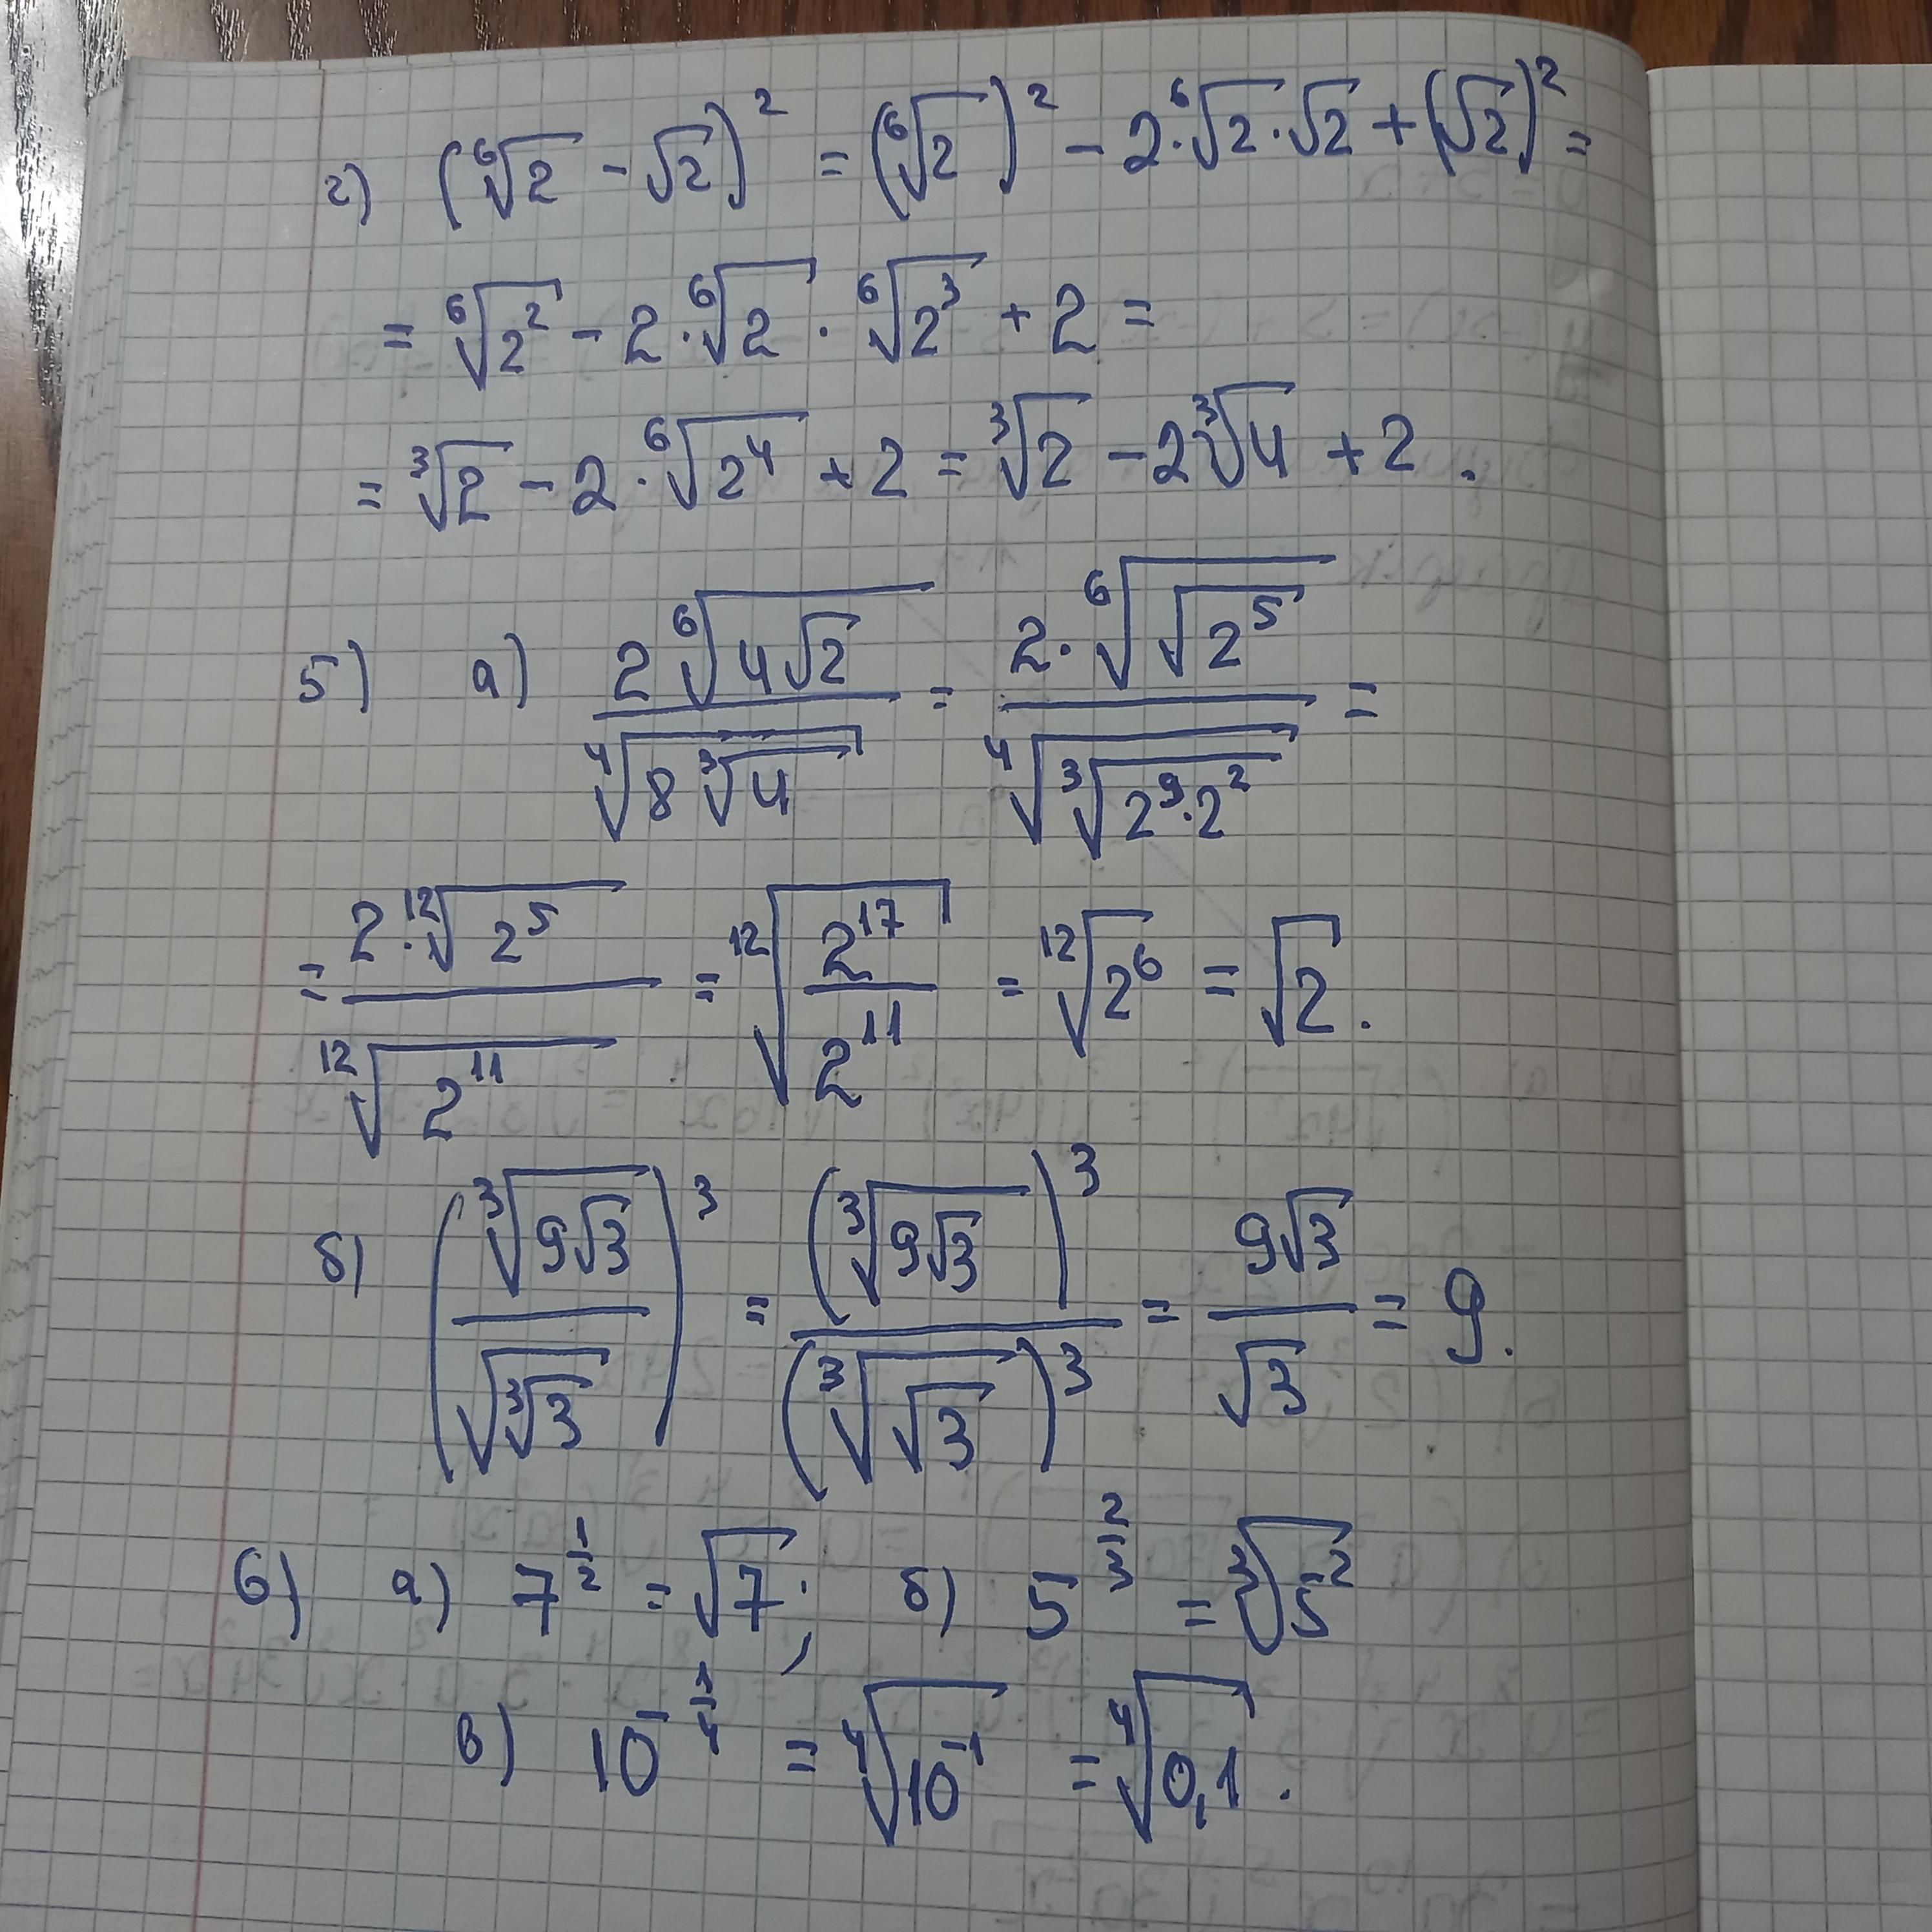 г) (⁶√2 − √2)² = (⁶√2)² − 2·⁶√2·√2 + (√2)² =
= ⁶√(2²) − 2·⁶√2 · ⁶√(2³) + 2 =
= ³√2 − 2·⁶√(2⁴) + 2 = ³√2 − 2³√4 + 2.
5) а) (2 ⁶√(4√2)) / (⁴√(8 ³√4)) = (2·⁶√(√(2⁵))) / (⁴√(³√(2⁹·2²))) =
= (2·¹²√(2⁵)) / (¹²√(2¹¹)) = ¹²√(2¹⁷ / 2¹¹) = ¹²√(2⁶) = √2.
б) (³√(9√3) / √(³√3))³ = (³√(9√3))³ / (³√(√3))³ = 9√3 / √3 = 9.
6) а) 7^(1/2) = √7; б) 5^(2/3) = ³√(5²)
в) 10^(−1/4) = ⁴√(10⁻¹) = ⁴√(0,1).